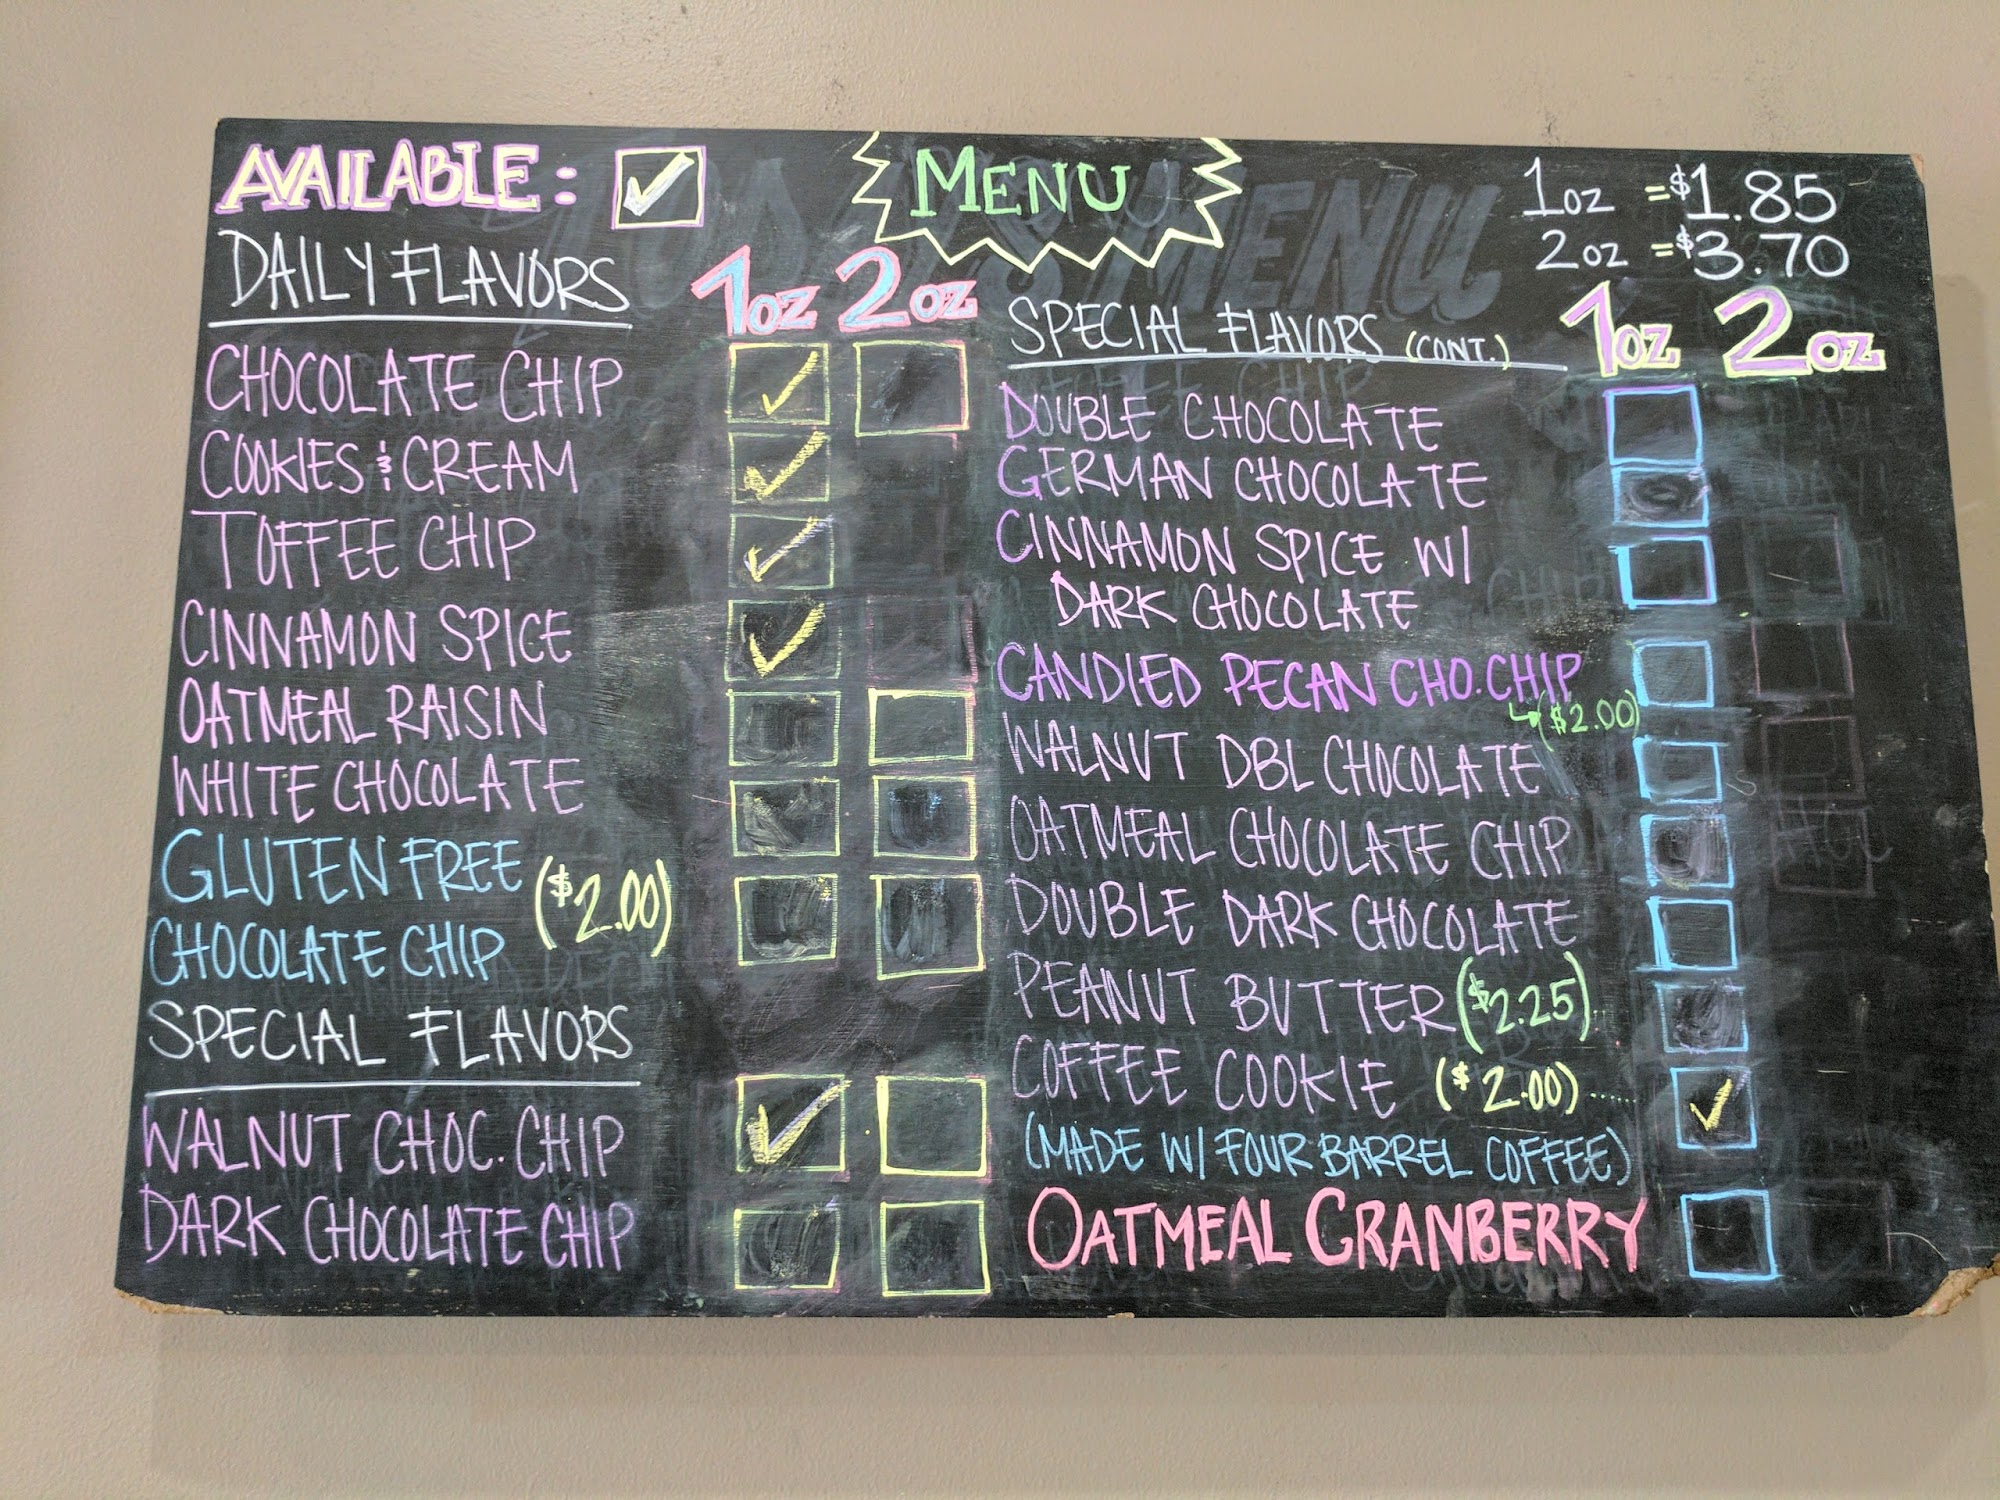 AVAILABLE: ✓
MENU
1oz =$1.85
2oz =$3.70
DAILY FLAVORS 1oz 2oz
CHOCOLATE CHIP ✓
COOKIES & CREAM ✓
TOFFEE CHIP ✓
CINNAMON SPICE ✓
OATMEAL RAISIN
WHITE CHOCOLATE
GLUTEN FREE
CHOCOLATE CHIP ($2.00)
SPECIAL FLAVORS
WALNUT CHOC. CHIP ✓
DARK CHOCOLATE CHIP
SPECIAL FLAVORS (CONT.) 1oz 2oz
DOUBLE CHOCOLATE
GERMAN CHOCOLATE
CINNAMON SPICE W/
DARK CHOCOLATE
CANDIED PECAN CHO.CHIP
($2.00)
WALNUT DBL CHOCOLATE
OATMEAL CHOCOLATE CHIP
DOUBLE DARK CHOCOLATE
PEANUT BUTTER ($2.25)..
COFFEE COOKIE ($2.00)...... ✓
(MADE W/ FOUR BARREL COFFEE)
OATMEAL CRANBERRY